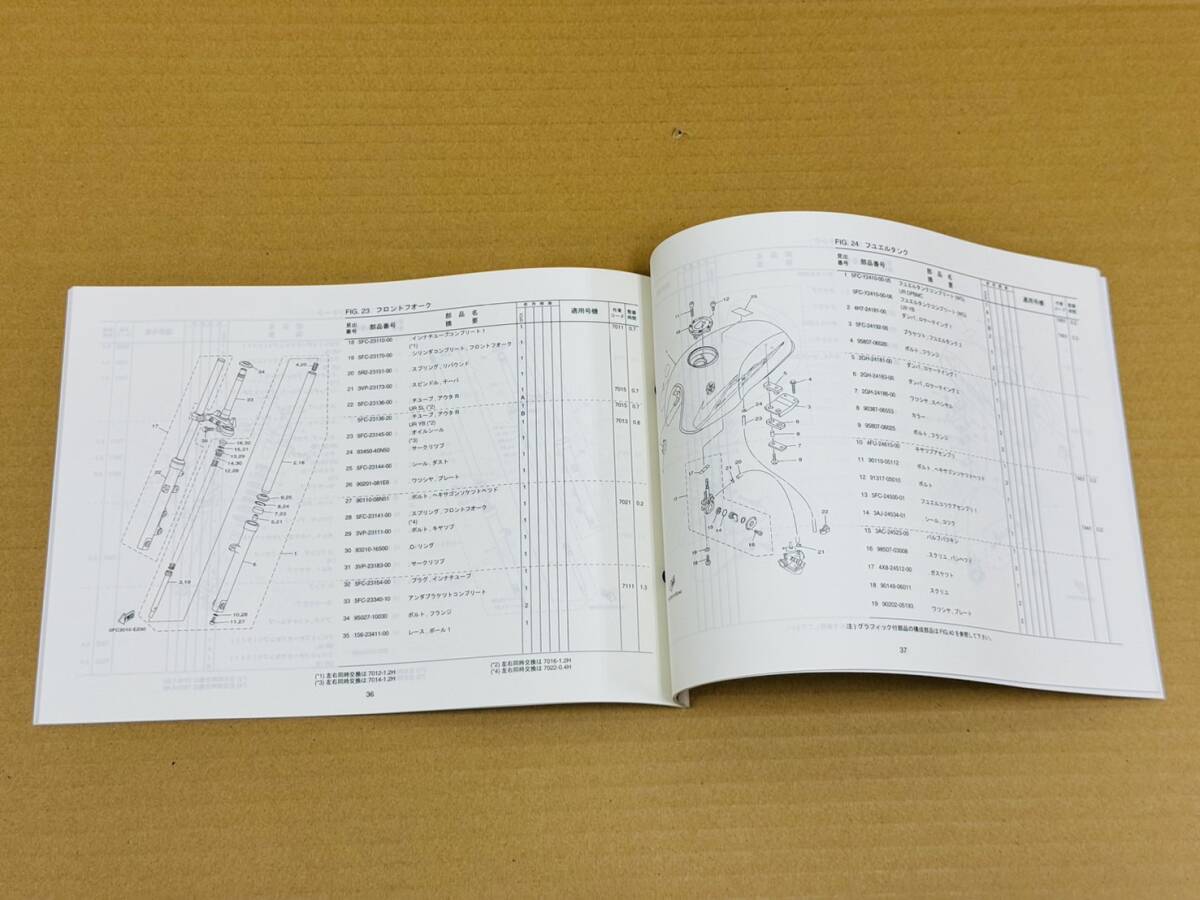 FIG. 23 フロントフオーク
見出番号 部品番号 部品名 摘要 適用号機
18 5FC-23110-00 .インナチユーブコンプリート1 1 7011 0.7
(*1)
19 5FC-23170-00 .シリンダコンプリート,フロントフオーク 1
20 5R2-23151-00 ..スプリング,リバウンド 1
21 3VP-23173-00 .スピンドル,テーパ 1
22 5FC-23136-00 .チユーブ,アウタ R 1 A 7015 0.7
UR SL (*2)
5FC-23136-20 .チユーブ,アウタ R 1 B 7015 0.7
UR YB (*2)
23 5FC-23145-00 .オイルシール 1 7013 0.6
(*3)
24 93450-40N50 .サークリツプ 1
25 5FC-23144-00 .シール,ダスト 1
26 90201-081E6 .ワツシヤ,プレート 1
27 90110-08N51 .ボルト,ヘキサゴンソケツトヘツド 1
28 5FC-23141-00 .スプリング,フロントフオーク 1 7021 0.2
(*4)
29 3VP-23111-00 .ボルト,キヤツプ 1
30 93210-16500 .O-リング 1
31 3VP-23183-00 .サークリツプ 1
32 5FC-23154-00 .プラグ,インナチユーブ 1
33 5FC-23340-10 アンダブラケツトコンプリート 1 7111 1.3
34 95027-10030 ボルト,フランジ 2
35 156-23411-00 レース,ボール 1 1
(*1) 左右同時交換は 7012-1.2H
(*2) 左右同時交換は 7016-1.2H
(*3) 左右同時交換は 7014-1.2H
(*4) 左右同時交換は 7022-0.4H
36
FIG. 24 フユエルタンク
見出番号 部品番号 部品名 摘要 適用号機
1 5FC-Y2410-00-05 フユエルタンクコンプリート(WG)
UR DPBMC
5FC-Y2410-00-06 フユエルタンクコンプリート(WG)
UR YB
2 6H7-24181-00 ダンパ,ロケーテイング1
3 5FC-24192-00 ブラケツト,フユエルタンク2
4 95807-06020 ボルト,フランジ
5 2GH-24181-00 ダンパ,ロケーテイング1
6 2GH-24183-00 ダンパ,ロケーテイング3
7 2GH-24186-00 ワツシヤ,スペシヤル
8 90387-06553 カラー
9 95807-06025 ボルト,フランジ
10 4FU-24610-00 キヤツプアセンブリ
11 90110-05112 ボルト,ヘキサゴンソケツトヘツド
12 91317-05010 ボルト
13 5FC-24500-01 フユエルコツクアセンブリ1
14 3AJ-24534-01 .シール,コツク
15 3AC-24523-00 .バルブパツキン
16 98507-03008 .スクリユ,パンヘツド
17 4X8-24512-00 .ガスケツト
18 90149-06011 スクリユ
19 90202-05183 ワツシヤ,プレート
注) グラフイツク付部品の構成部品は FIG.40 を参照して下さい。
37